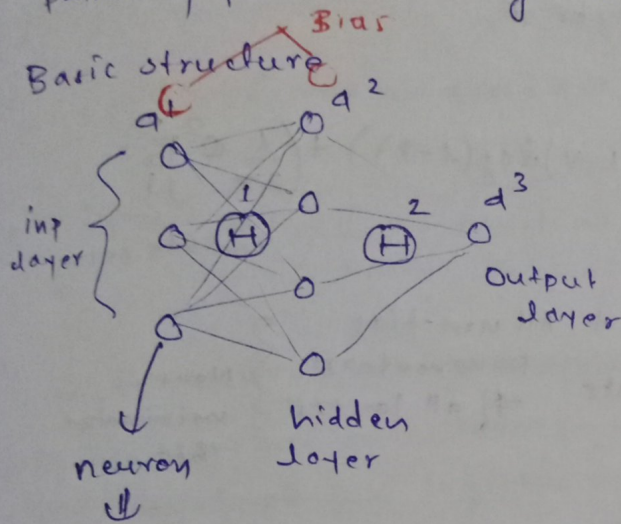 Bias
Basic structure
a1
a2
inp
layer
1
H
2
H
a3
Output
layer
hidden
layer
neuron